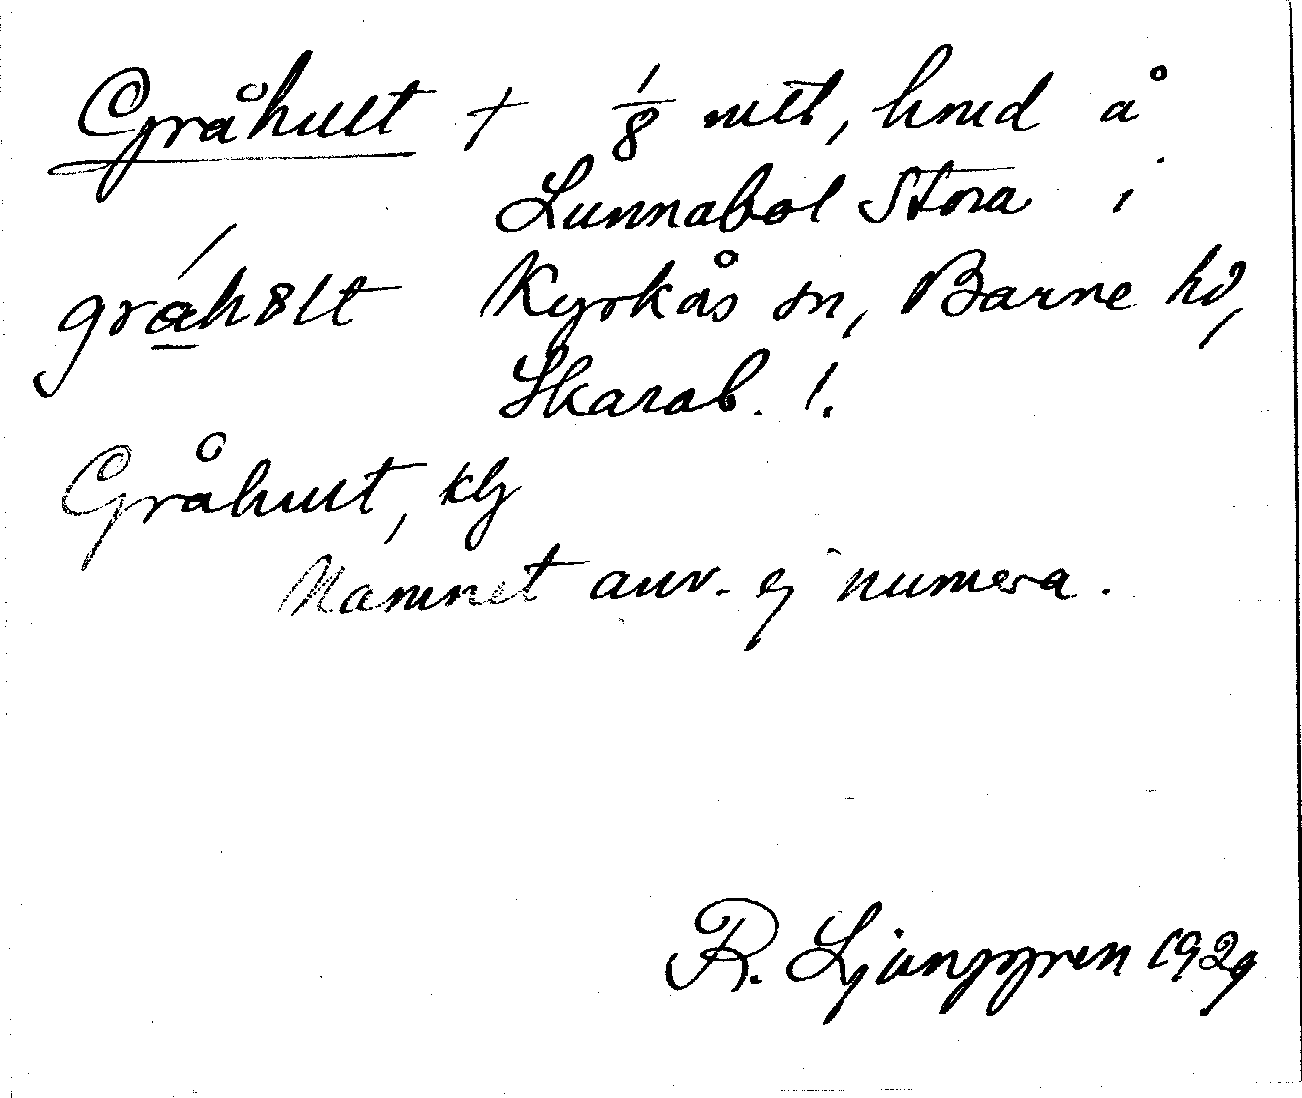 Gråhult + 1/8 mtl, hmd å
Lunnabol Stora i
gråh8lt Kyrkås sn, Barne hd,
Skarab. l.
Gråhult, klj
Namnet anv. ej numera.
R. Ljunggren 1929